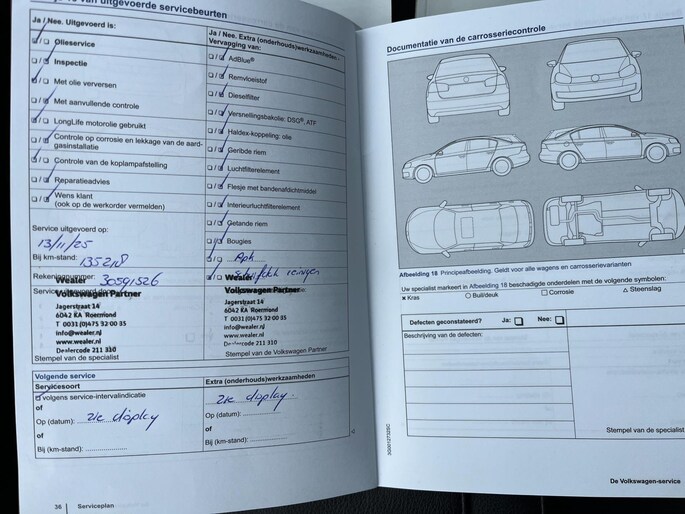 van uitgevoerde servicebeurten
Ja / Nee. Uitgevoerd is:
Olieservice
Inspectie
Met olie verversen
Met aanvullende controle
LongLife motorolie gebruikt
Controle op corrosie en lekkage van de aard-
gasinstallatie
Controle van de koplampafstelling
Reparatieadvies
Wens klant
(ook op de werkorder vermelden)
Service uitgevoerd op:
13/11/25
Bij km-stand: 135218
Rekeningnummer: 30591526
Wealer
Volkswagen Partner
Jagerstraat 14
6042 KA Roermond
T 0031 (0)475 32 00 35
info@wealer.nl
www.wealer.nl
Dealercode 211 310
Stempel van de specialist
Ja / Nee. Extra (onderhouds)werkzaamheden
Vervanging van:
AdBlue®
Remvloeistof
Dieselfilter
Versnellingsbakolie: DSG®, ATF
Haldex-koppeling: olie
Geribde riem
Luchtfilterelement
Flesje met bandenafdichtmiddel
Interieurluchtfilterelement
Getande riem
Bougies
Apk
reinigen
Wealer
Volkswagen Partner
Jagerstraat 14
6042 KA Roermond
T 0031 (0)475 32 00 35
info@wealer.nl
www.wealer.nl
Dealercode 211 310
Stempel van de Volkswagen Partner
Volgende service
Servicesoort
volgens service-intervalindicatie
of
Op (datum): zie display
of
Bij (km-stand):
Extra (onderhouds)werkzaamheden
zie display
Op (datum):
of
Bij (km-stand):
36 Serviceplan
Documentatie van de carrosseriecontrole
Afbeelding 18 Principeafbeelding. Geldt voor alle wagens en carrosserievarianten
Uw specialist markeert in Afbeelding 18 beschadigde onderdelen met de volgende symbolen:
× Kras ○ Buil/deuk □ Corrosie △ Steenslag
Defecten geconstateerd? Ja: Nee:
Beschrijving van de defecten:
Stempel van de specialist
De Volkswagen-service